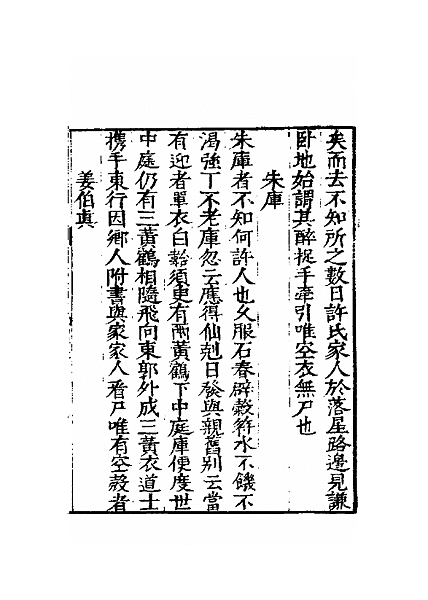 矣而去不知所之數日許氏家人於落星路邊見謙
卧地始謂其醉捉手牽引唯空衣無尸也
朱庫
朱庫者不知何許人也久服石春辟榖符水不饑不
渴強丁不老庫忽云應得仙剋日發與親舊别云當
有迎者單衣白㡊須臾有兩黄鶴下中庭庫便度世
中庭仍有三黄鶴相隨飛向東郭外成三黄衣道士
携手東行因鄉人附書與家家人看尸唯有空殼者
姜伯真